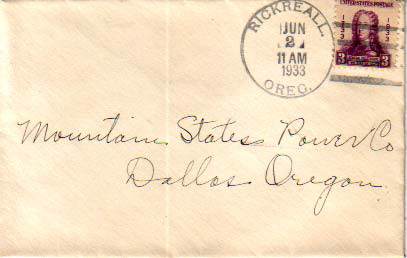 RICKREALL.
JUN
2
11 AM
1933
OREG.
UNITED STATES POSTAGE
3 3
Mountain States Power Co
Dallas Oregon.